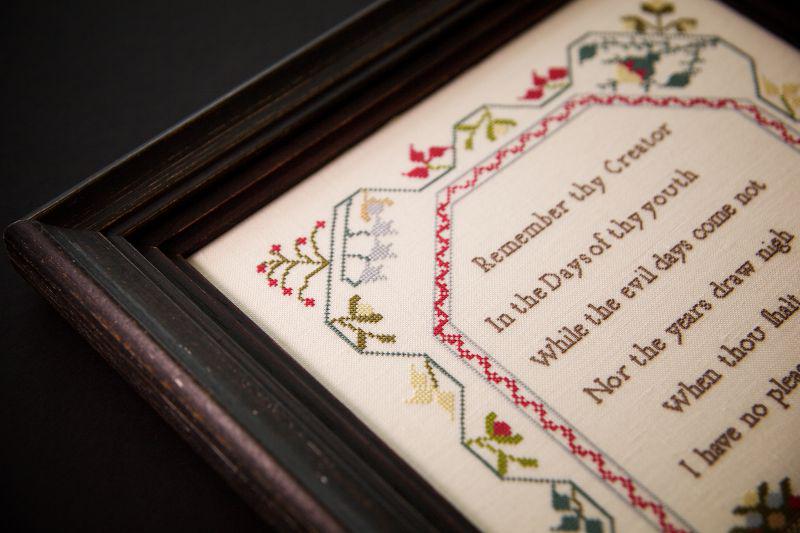 Remember thy Creator
In the Days of thy youth
While the evil days come not
Nor the years draw nigh
When thou
I have no